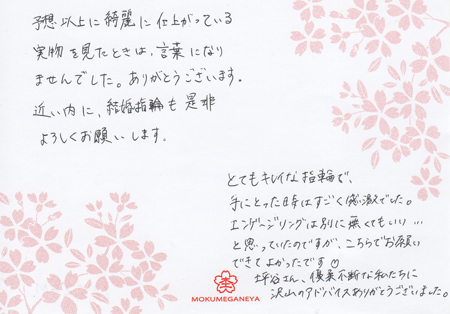 予想以上に綺麗に仕上がっている
実物を見たときは、言葉になり
ませんでした。ありがとうございます。
近い内に、結婚指輪も是非
よろしくお願いします。
とてもキレイな指輪で、
手にとった時はすごく感激でした。
エンゲージリングは別に無くてもいい…
と思っていたのですが、こちらでお願い
できてよかったです♡
坪谷さん、優柔不断な私たちに
沢山のアドバイスありがとうございました。
MOKUMEGANEYA